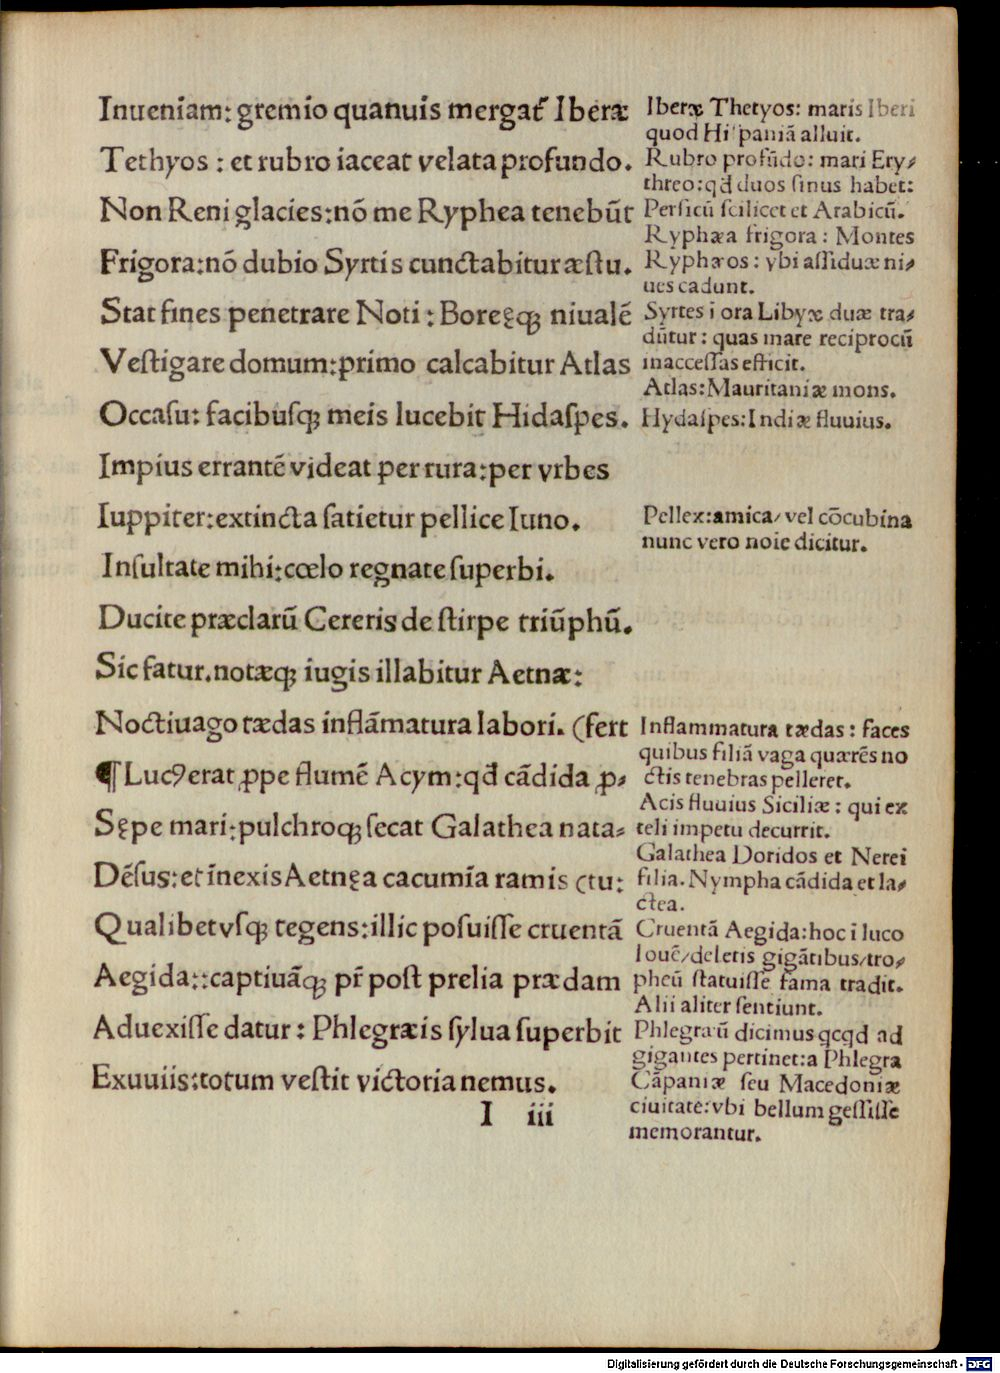 Inueniam: gremio quanuis mergat᷑ Iberæ
Tethyos : et rubro iaceat velata profundo.
Non Reni glacies:nō me Ryphea tenebūt
Frigora:nō dubio Syrtis cunctabitur æſtu.
Stat fines penetrare Noti : Boreęqꝫ niualē
Veſtigare domum:primo calcabitur Atlas
Occaſu: facibuſqꝫ meis lucebit Hidaſpes.
Impius errantē videat per rura:per vrbes
Iuppiter:extincta ſatietur pellice Iuno.
Inſultate mihi:cœlo regnate ſuperbi.
Ducite præclarū Cereris de ſtirpe triūphū.
Sic fatur.notæqꝫ iugis illabitur Aetnæ:
Noctiuago tædas inflāmatura labori. (fert
¶ Lucꝰ erat ꝓpe flumē Acym:qd̄ cādida ꝓ⸗
Sępe mari:pulchroqꝫ ſecat Galathea nata⸗
Dēſus:et īnexis Aetnęa cacumīa ramis (tu:
Qualibet vſqꝫ tegens:illic poſuiſſe cruentā
Aegida::captiuāqꝫ pr̄ poſt prelia prædam
Aduexiſſe datur : Phlegræis ſylua ſuperbit
Exuuiis:totum veſtit victoria nemus.
I iii
Iberæ Thetyos: maris Iberi
quod Hiſpaniā alluit.
Rubro profūdo: mari Ery⸗
threo:qd̄ duos ſinus habet:
Perſicū ſcilicet et Arabicū.
Ryphæa frigora : Montes
Ryphæos : vbi aſſiduæ ni⸗
ues cadunt.
Syrtes i ora Libyæ duæ tra⸗
dūtur : quas mare reciprocū
inacceſſas efficit.
Atlas:Mauritaniæ mons.
Hydaſpes:Indiæ fluuius.
Pellex:amica/vel cōcubina
nunc vero noie dicitur.
Inflammatura tædas : faces
quibus filiā vaga quærēs no
ctis tenebras pelleret.
Acis fluuius Siciliæ : qui ex
teli impetu decurrit.
Galathea Doridos et Nerei
filia. Nympha cādida et la⸗
ctea.
Cruentā Aegida:hoc i luco
Iouē/deletis gigātibus/tro⸗
pheū ſtatuiſſe fama tradit.
Alii aliter ſentiunt.
Phlegræū dicimus qcqd ad
gigantes pertinet:a Phlegra
Cāpaniæ ſeu Macedoniæ
ciuitate:vbi bellum geſſiſſe
memorantur.
Digitalisierung gefördert durch die Deutsche Forschungsgemeinschaft - DFG